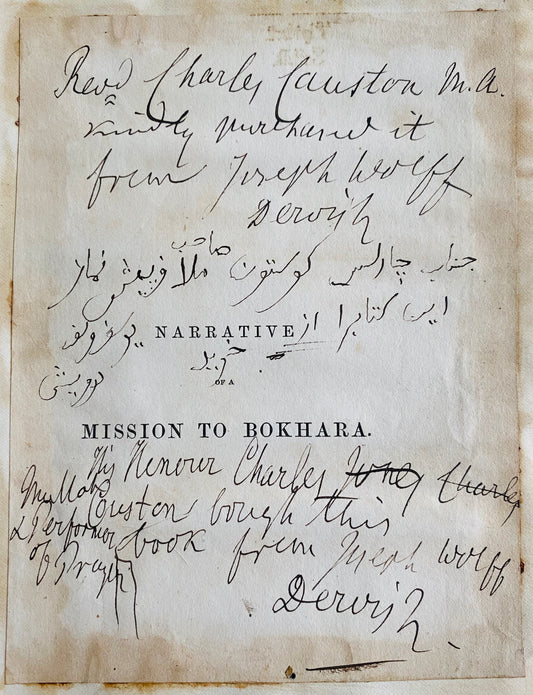 Revd Charles Causton M.A.
kindly purchased it
from Joseph Wolff
Derwish
جناب چارلس کوستون صاحب ملا و پیش نماز
این کتابرا از
NARRATIVE
خرید
OF A
درویش
MISSION TO BOKHARA.
His Honour Charles Jones Charles
Mullah &
Performer
of Prayer
Causton bough this
book from Joseph Wolff
Derwish.